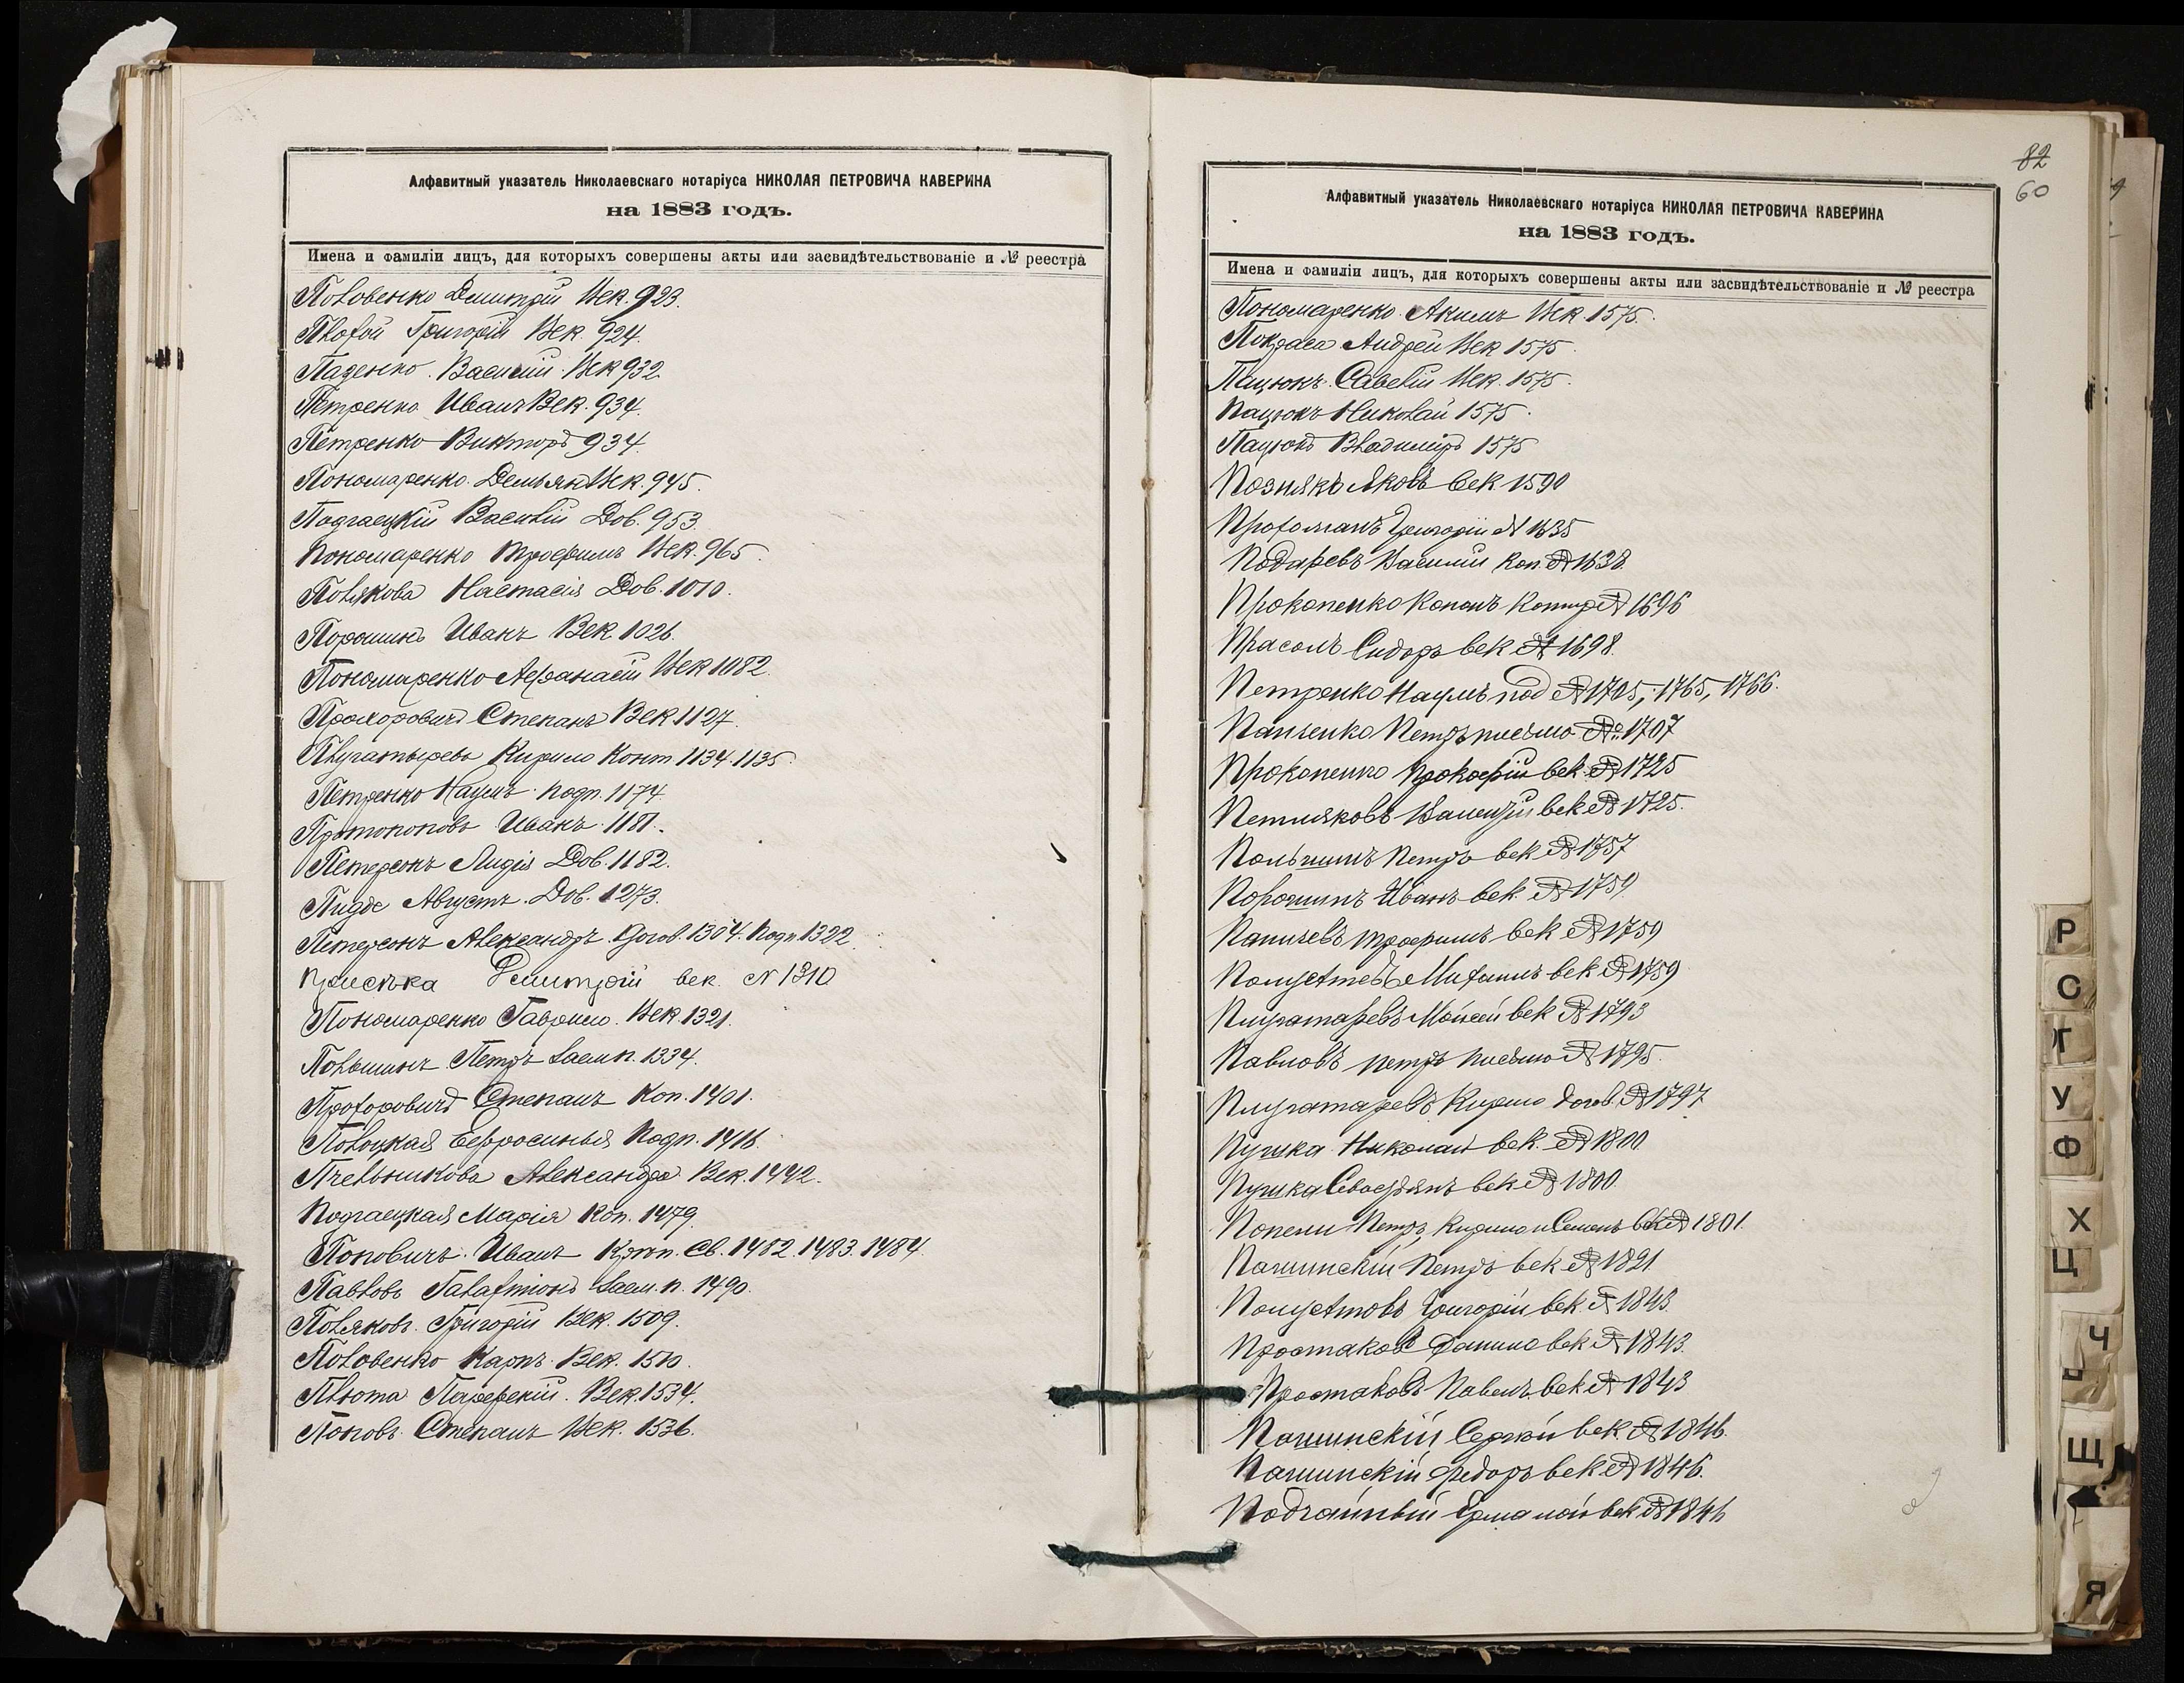 Алфавитный указатель Николаевскаго нотаріуса НИКОЛАЯ ПЕТРОВИЧА КАВЕРИНА
на 1883 годъ.
Имена и фамиліи лицъ, для которыхъ совершены акты или засвидѣтельствованіе и № реестра
Половенко Дмитрій Век. 923.
Плохой Григорій Век. 924.
Паденко. Василій. Век 932
Петренко Иванъ Век. 934.
Петренко Викторъ 934.
Пономаренко. Демьян Век. 945.
Подгаецкій Василій Дов. 953.
Пономаренко Трофимъ Век. 965.
Полякова Настасія Дов. 1010.
Порошинъ Иванъ Век 1026.
Пономаренко Афанасій Век 1082.
Прохоровичъ Степанъ Век 1127.
Плугатырева Кирило Конт. 1134. 1135.
Петренко Наумъ. подп. 1174.
Протопоповъ Иванъ. 1181.
Петерсонъ Лидія Дов. 1182.
Пидде Августъ. Дов. 1273.
Петерсонъ Александръ. Догов. 1304. Подп 1322.
Дмитрій век. № 1310
Пономаренко Гаврило. Век. 1321.
Польшинъ Петръ 1334.
Прохоровичъ Степанъ Коп. 1401.
Полоцкая Евфросинья Подп. 1416.
Пчельникова Александра Век. 1442.
Подгаецкая Марія Коп. 1479.
Поповичъ. Иванъ Св. 1482. 1483. 1484.
Павловъ Галактіонъ 1490.
Поляковъ. Григорій Век. 1509.
Половенко Карпъ. Век. 1510.
Плюта Порфирій. Век. 1534.
Поповъ. Степанъ Век. 1536.
82
60
Алфавитный указатель Николаевскаго нотаріуса НИКОЛАЯ ПЕТРОВИЧА КАВЕРИНА
на 1883 годъ.
Имена и фамиліи лицъ, для которыхъ совершены акты или засвидѣтельствованіе и № реестра
Пономаренко. Акимъ Век. 1575.
Покраса Андрей Век 1575.
Пацюкъ. Савелій Век. 1575.
Пацюкъ Николай 1575.
Пацюкъ Владиміръ 1575
Познякъ Яковъ век 1590
Григорій № 1635
Василій Коп. № 1638.
Прокопенко Кононъ № 1696
Прасолъ Сидоръ век № 1698.
Петренко Наумъ под № 1705, 1765, 1766.
Панченко Петръ письмо № 1707
Прокопенко Прокофій век. № 1725
Петляковъ Валерій век № 1725.
Польшинъ Петръ век № 1757
Порошинъ Иванъ век. № 1759
Трофимъ век № 1759
век № 1759
Плугатаревъ Моисей век № 1793
Павловъ петръ письмо № 1795.
Плугатаревъ Кирило догов. № 1797
Пушка Николай век. № 1800.
Пушка век № 1800.
Петръ, Кирило и Семенъ век № 1801.
Пашинскій Петръ век № 1821.
Григорій век. № 1843.
Простаковъ Данило век № 1843.
Простаковъ Павелъ век № 1843
Пашинскій Сергѣй век. № 1846.
Пашинскій Федоръ век № 1846.
Подчайный Ермолай век № 1846
Р
С
Т
У
Ф
Х
Ц
Ч
Щ
Я